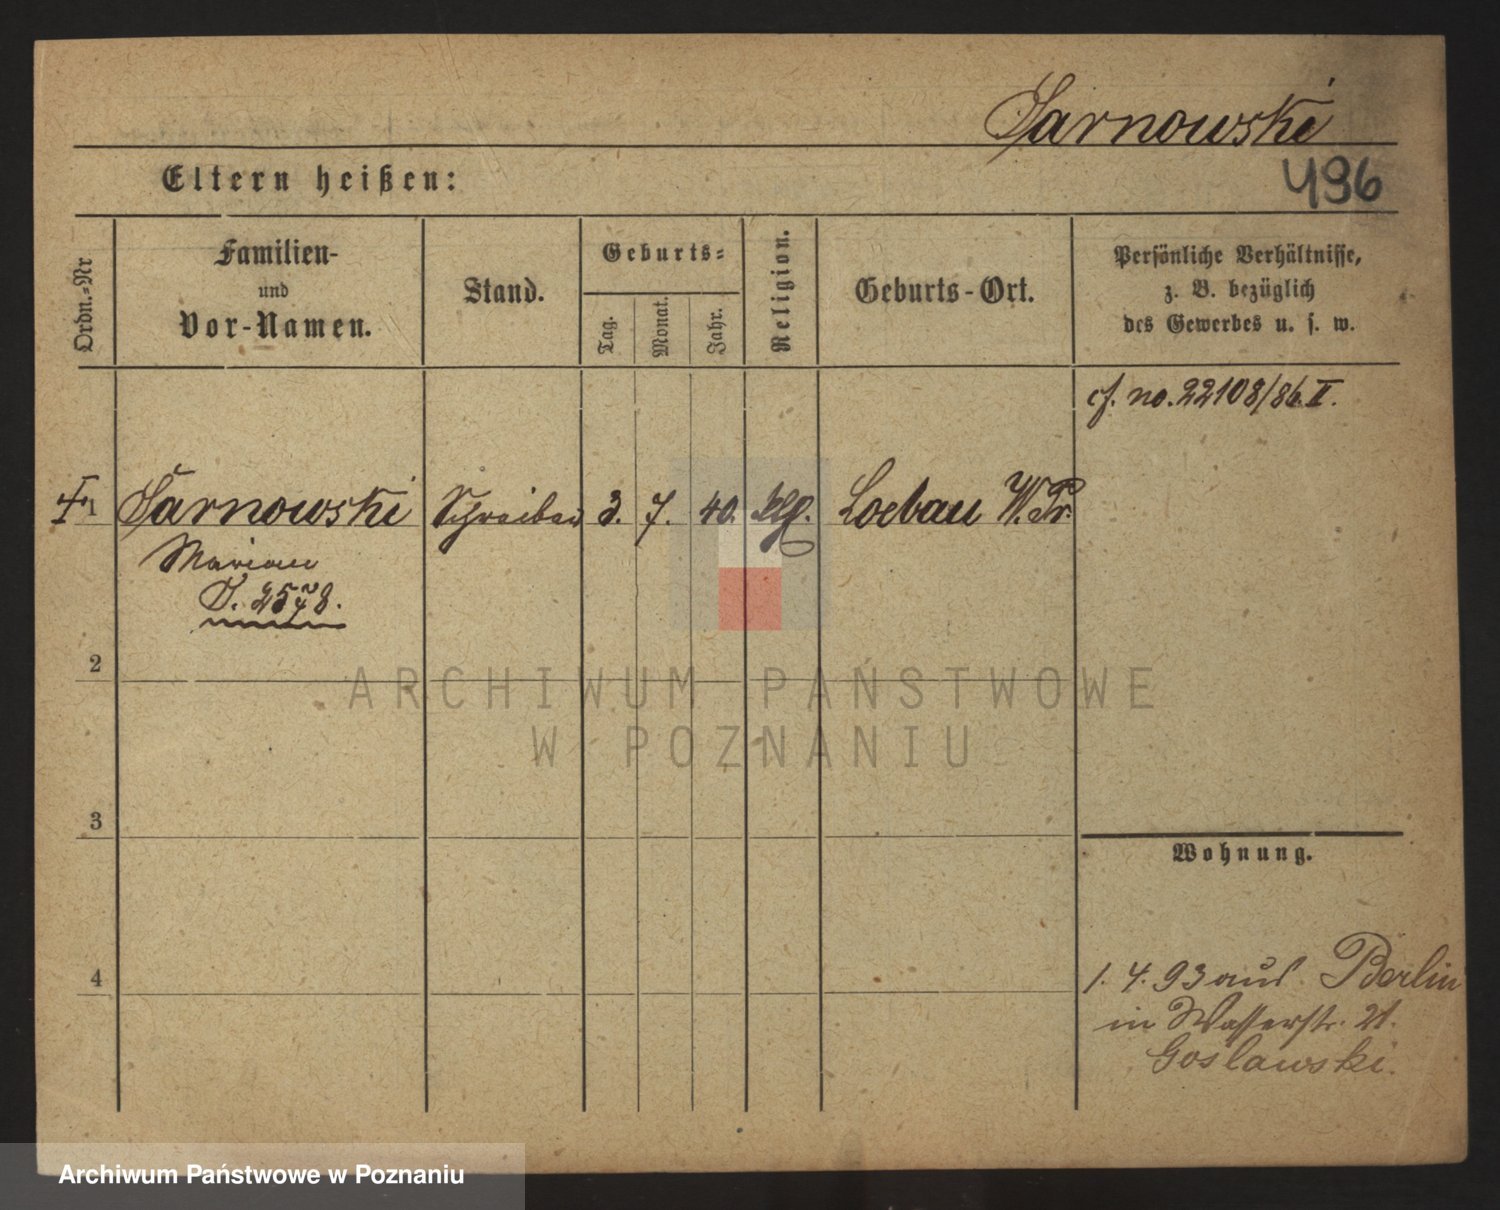 Sarnowski
496
Eltern heißen:
Ordn.-Nr
Familien-
und
Vor-Namen.
Stand.
Geburts-
Tag.
Monat.
Jahr.
Religion.
Geburts-Ort.
Persönliche Verhältnisse,
z. B. bezüglich
des Gewerbes u. s. w.
cf. no. 22108/86. II.
1 Sarnowski Schreiber 3. 7. 40. klg. Loebau W. Pr.
Marian
J. 2578.
2
3
4
Wohnung.
1. 4. 93 aus Berlin
in Wasserstr. 21.
Goslawski.
ARCHIWUM PAŃSTWOWE
W POZNANIU
Archiwum Państwowe w Poznaniu